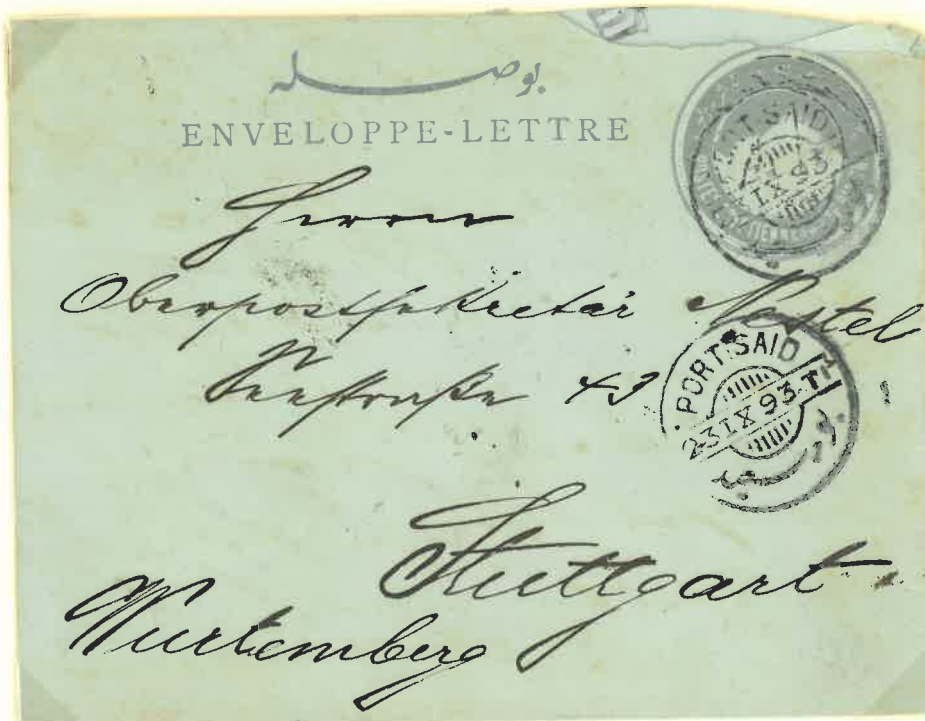 بوصله
ENVELOPPE-LETTRE
PORT SAID
IX 93
Herrn
Oberpostsekretär Nestel
Seestraße 43
PORT-SAID
23 IX 93 T
بورسعيد
Stuttgart
Wurtemberg